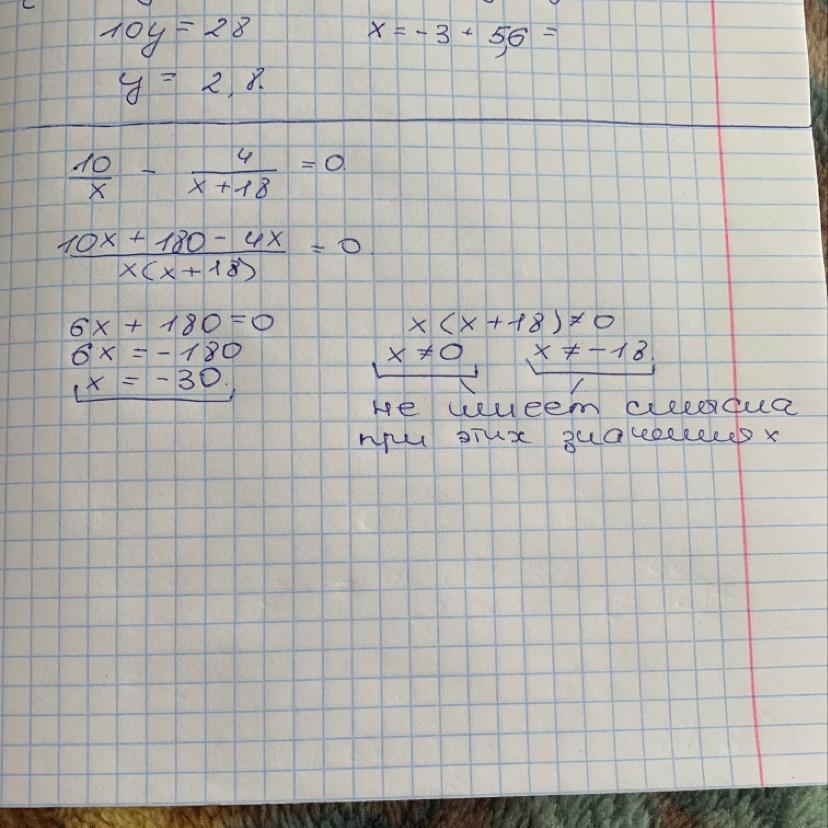 10y = 28
x = -3 + 5,6 =
y = 2,8.
10/x - 4/(x+18) = 0
(10x + 180 - 4x)/(x(x+18)) = 0
6x + 180 = 0
x(x+18) ≠ 0
6x = -180
x ≠ 0 x ≠ -18.
x = -30.
не имеет смысла
при этих значениях